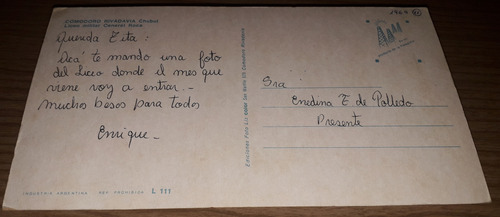 COMODORO RIVADAVIA Chubut
Liceo militar General Roca
Querida Tita:
Acá te mando una foto
del liceo donde el mes que
viene voy a entrar. -
muchos besos para todos
Enrique -
INDUSTRIA ARGENTINA REP. PROHIBIDA L 111
Ediciones Foto Luz
Comodoro Rivadavia
Sra:
Enedina T de Polledo
Presente